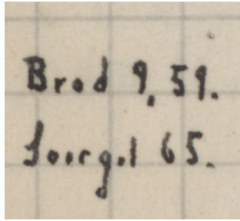 Brod 9, 59.
Soergel 65.